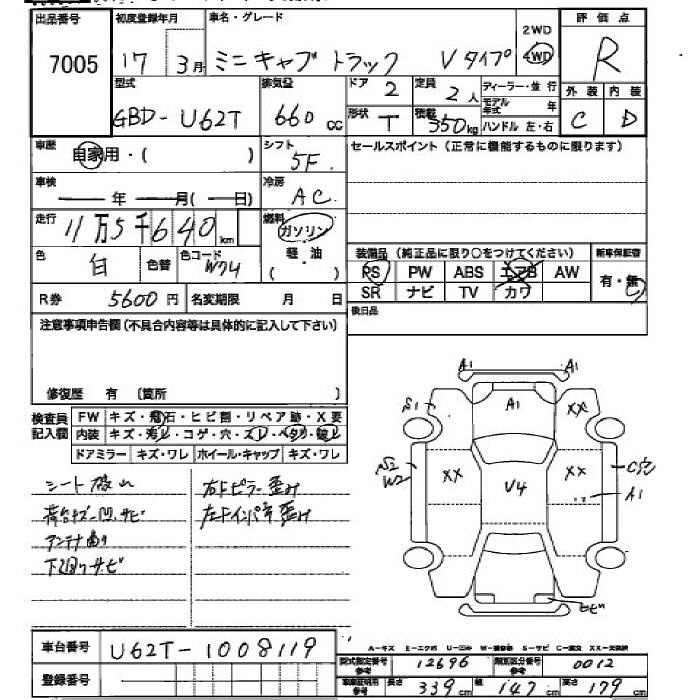 出品番号 初度登録年月 車名・グレード 2WD 4WD 評価点
7005 17 3月 ミニキャブ トラック Vタイプ R
型式 排気量 ドア 2 定員 2人 ディーラー・並行 外装 内装
GBD-U62T 660cc 形状 T 積載 350kg モデル年式 年 ハンドル 左・右 C D
車歴 自家用・( ) シフト 5F セールスポイント(正常に機能するものに限ります)
車検 年 月( 日) 冷房 AC
走行 11万5千640km 燃料 ガソリン 軽油 ( )
色 白 色替 色コード W74
装備品(純正品に限り○をつけてください) 新車保証書
PS PW ABS エアB AW 有・無
SR ナビ TV カワ
R券 5600円 名変期限 月 日
後日品
注意事項申告欄(不具合内容等は具体的に記入して下さい)
修復歴 有 〔箇所 〕
検査員記入欄 FW キズ・飛石・ヒビ割・リペア跡・X要
内装 キズ・汚レ・コゲ・穴・スレ・ヘタリ・破レ
ドアミラー キズ・ワレ ホイール・キャップ キズ・ワレ
シート破レ 右Fピラー歪み
荷台キズ凹サビ 左Fインパネ歪み
アンテナ曲り
下廻りサビ
A1 A1
S1 A1 XX
S2 W2 XX V4 XX A1
ヒビ
A-キズ E-エクボ U-凹み W-補修跡 S-サビ C-腐食 XX-交換済
車台番号 U62T-1008119
登録番号
型式指定番号参考 12696 類別区分番号参考 0012
車庫証明用参考 長さ 339cm 幅 147cm 高さ 179cm